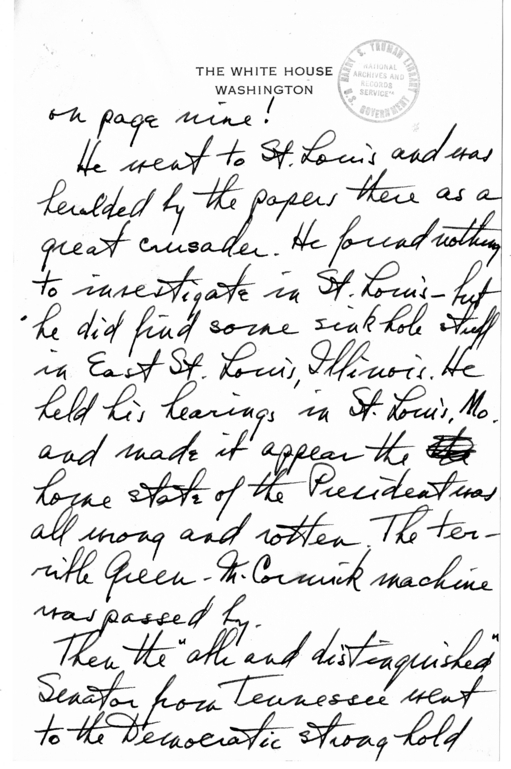 THE WHITE HOUSE
WASHINGTON
HARRY S. TRUMAN LIBRARY
NATIONAL
ARCHIVES AND
RECORDS
SERVICE
U.S. GOVERNMENT
on page nine!
He went to St. Louis and was
heralded by the papers there as a
great crusader. He found nothing
to investigate in St. Louis – but
he did find some sink hole stuff
in East St. Louis, Illinois. He
held his hearings in St. Louis, Mo.
and made it appear the
home state of the President was
all wrong and rotten. The ter-
rible Green - McCormick machine
was passed by.
Then the "able and distinguished"
Senator from Tennessee went
to the Democratic strong hold